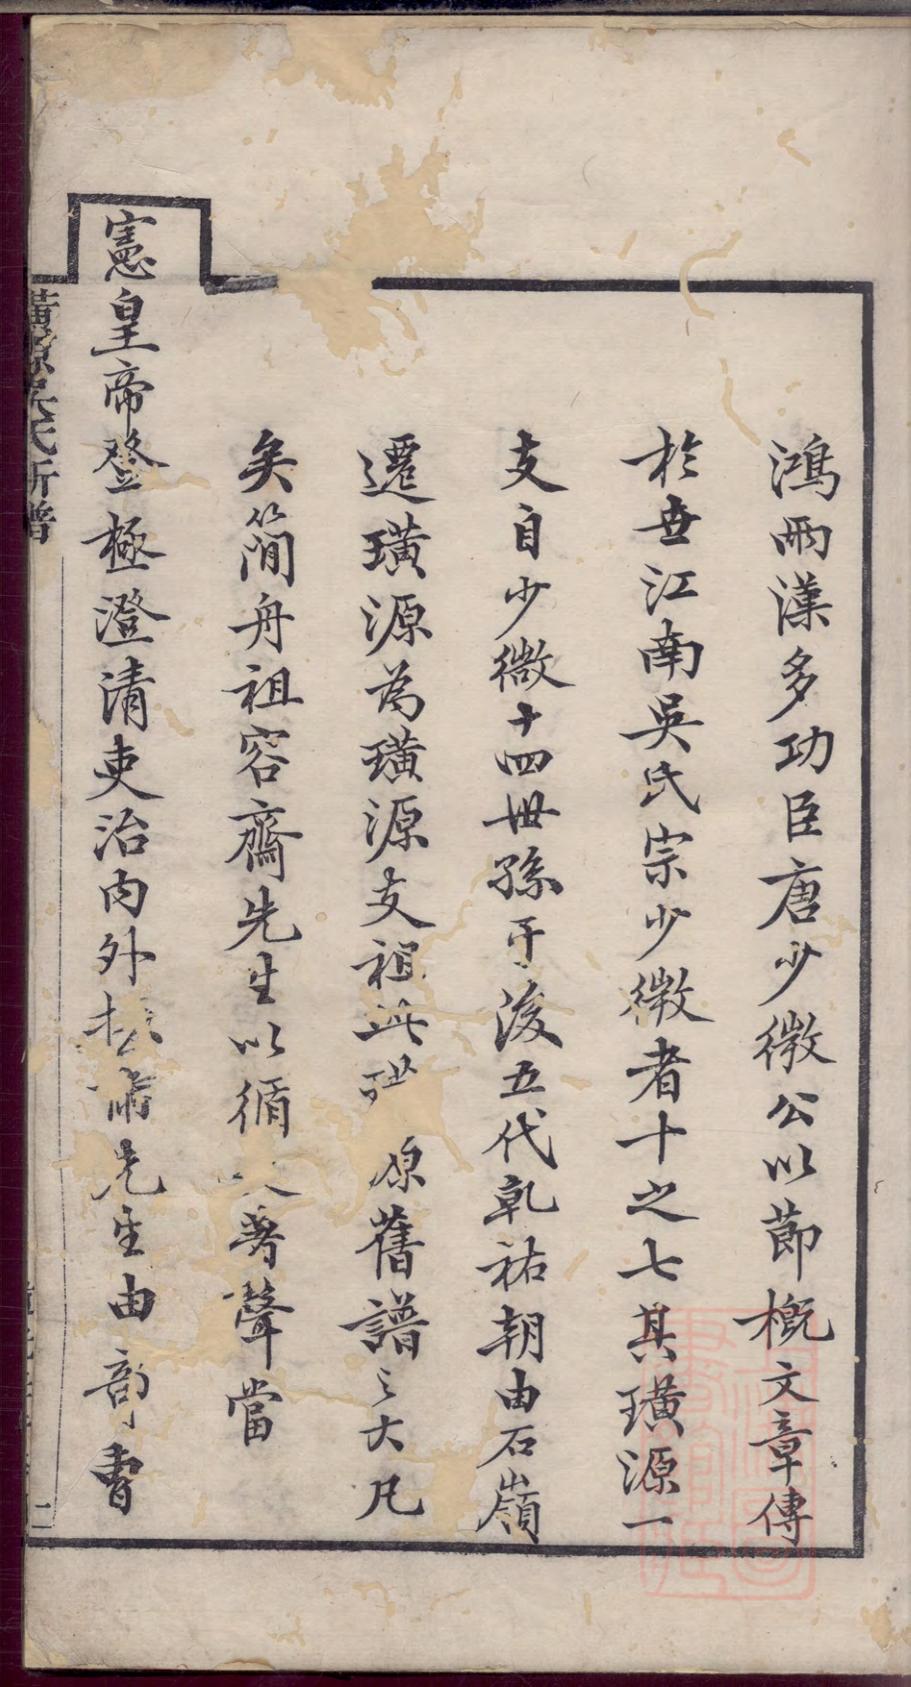 鴻兩漢多功臣唐少微公以節概文章傳
於世江南吳氏宗少微者十之七其璜源一
支自少微十四世孫于浚五代乹祐朝由石嶺
遷璜源為璜源支祖此璜源舊譜之大凡
矣簡舟祖容齋先生以循著聲當
憲皇帝登極澄清吏治內外先生由部曹
璜源吳氏新譜
二